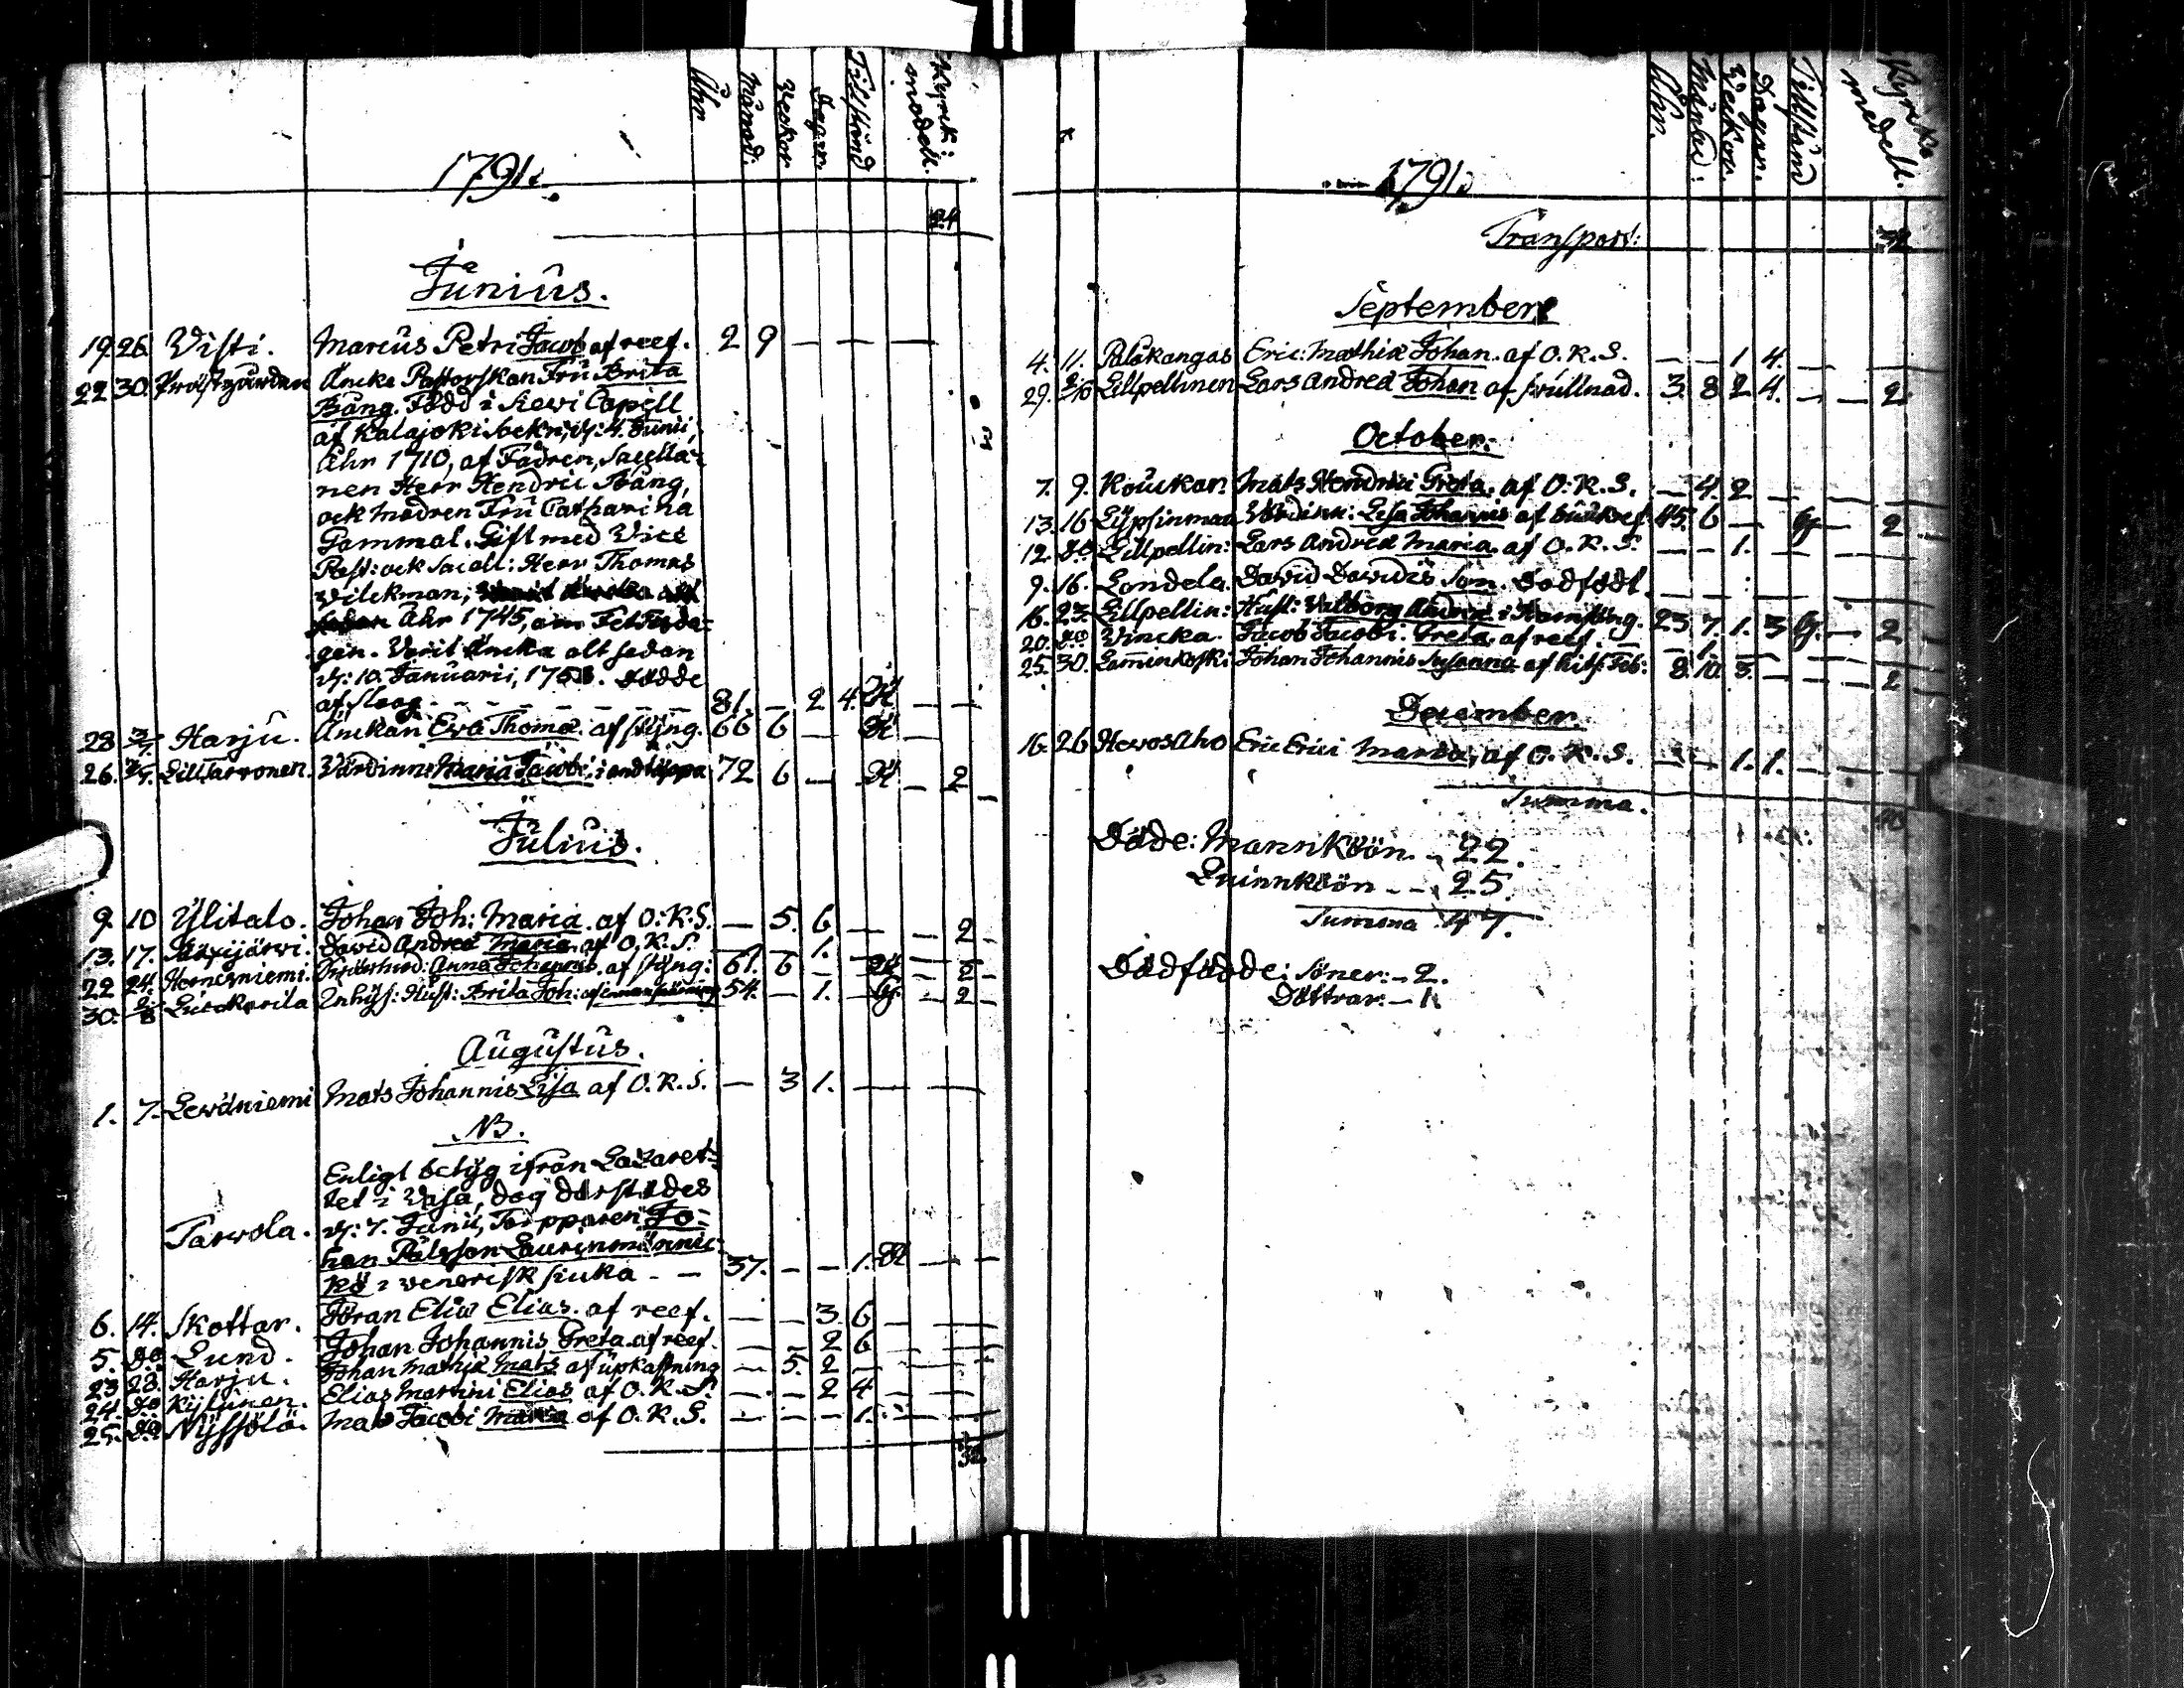 Åhr Månad: Veckor Dagar Tillstånd Kyrck: medell.
1791.
24
Junius.
19. 26. Visti. Marcus Petri Jacob af reef. 2 9 — — —
22 30. Prästgården Änckê Pastorskan Fru Brita
Bång. Född i Kewi Capell
af Kalajoki Sockn, d: 4. Junii,
Åhr 1710, af Fadren, Sacella-
nen Herr Hendric Bång,
ock modren Fru Catharina
Gammal. Gift med Vice
Past: ock Sacell: Herr Thomas
Wilckman,
Åhr 1745,
gen. Varit Äncka alt sedan
d: 10. Januarii, 176 . Dödde
af Slaag - - - - - 81. — 2 4. — —
28 3/7 Harju. Änckan Eva Thomæ. af styng. 66 6 — —
26. 3/7. Lill Jarvonen. Värdinn: Maria Jacobi, i andtäppa 72 6 — — 2 —
Julius.
9. 10 Ylitalo. Johan Joh: Maria af O:K.S. — 5. 6 — — 2 -
13. 17. David Andreæ Maria af O.K.S. — — 1. —
22 24. Anna Johannis af styng: 61. 6 — — 2 —
30. Inhys: Hust: Brita Joh: 54. — 1. — G. — 2 —
Augustus.
1. 7. Lewäniemi Mats Johannis Lisa af O.K.S. — 3 1. — —
NB.
Enligt betyg ifrån Lazaret-
tet i Vasa, dog därstädes
Tarvola. d: 7. Junii, Torpparen Jo-
han Pålsson Laurinmännic-
kö i venerisk siuka - - 37. — — 1. — —
6. 14. Skottar. Jöran Eliæ Elias. af reef. — — 3. 6 — —
5. do Lund. Johan Johannis Greta af reef. — — 2 6 — —
23 28. Harju. Johan Mathiæ Mats af upkastning — 5. 2 — —
24. do Kytinen. Elias Martini Elias af O.K.S. — — 2 4 — —
25. do Nyssölä. Mats Jacobi Maria af O.K.S. — — — 1. — —
32
Åhr. Månad: Veckor. Dagar. Tillstånd Kyrcko medell.
1791.
Transport: 32
September
4. 11. Palokangas Eric: Mathiæ Johan. af O.K.S. — — 1 4. — —
29. 2/10 Lillpellinen Lars Andreæ Johan af svullnad. 3. 8 2 4. — — 2
October.
7. 9. Koukar. Mats Hendrici Greta. af O:K.S. — 4. 2 —
13. 16 Värdinn: Lisa Johannis af 45. 6 — G — 2
12. do Lillpellin: Lars Andreæ Maria. af O.K.S. — — 1. —
9. 16. Londela. David Davidis Son. Dödfödt. — —
16. 23. Lillpellin: Hust: Valborg Andreæ i Barnsäng. 23 7. 1. 3 G. — 2
20. do Vincka. Jacob Jacobi: Greta. af reef. — 1. —
25. 30. Laminkoski Johan Johannis Susanna af hits: Feb: 8. 10. 3. — — — 2
December.
16. 26 Hewosaho Eric Erici Maria, af O.K.S. — — 1. 1. — —
Summa. 40
Döde: Mannköön. - 22.
Quinnköön - - 25.
Summa 47.
Dödfödde: Söner: - 2.
Döttrar: - 1.